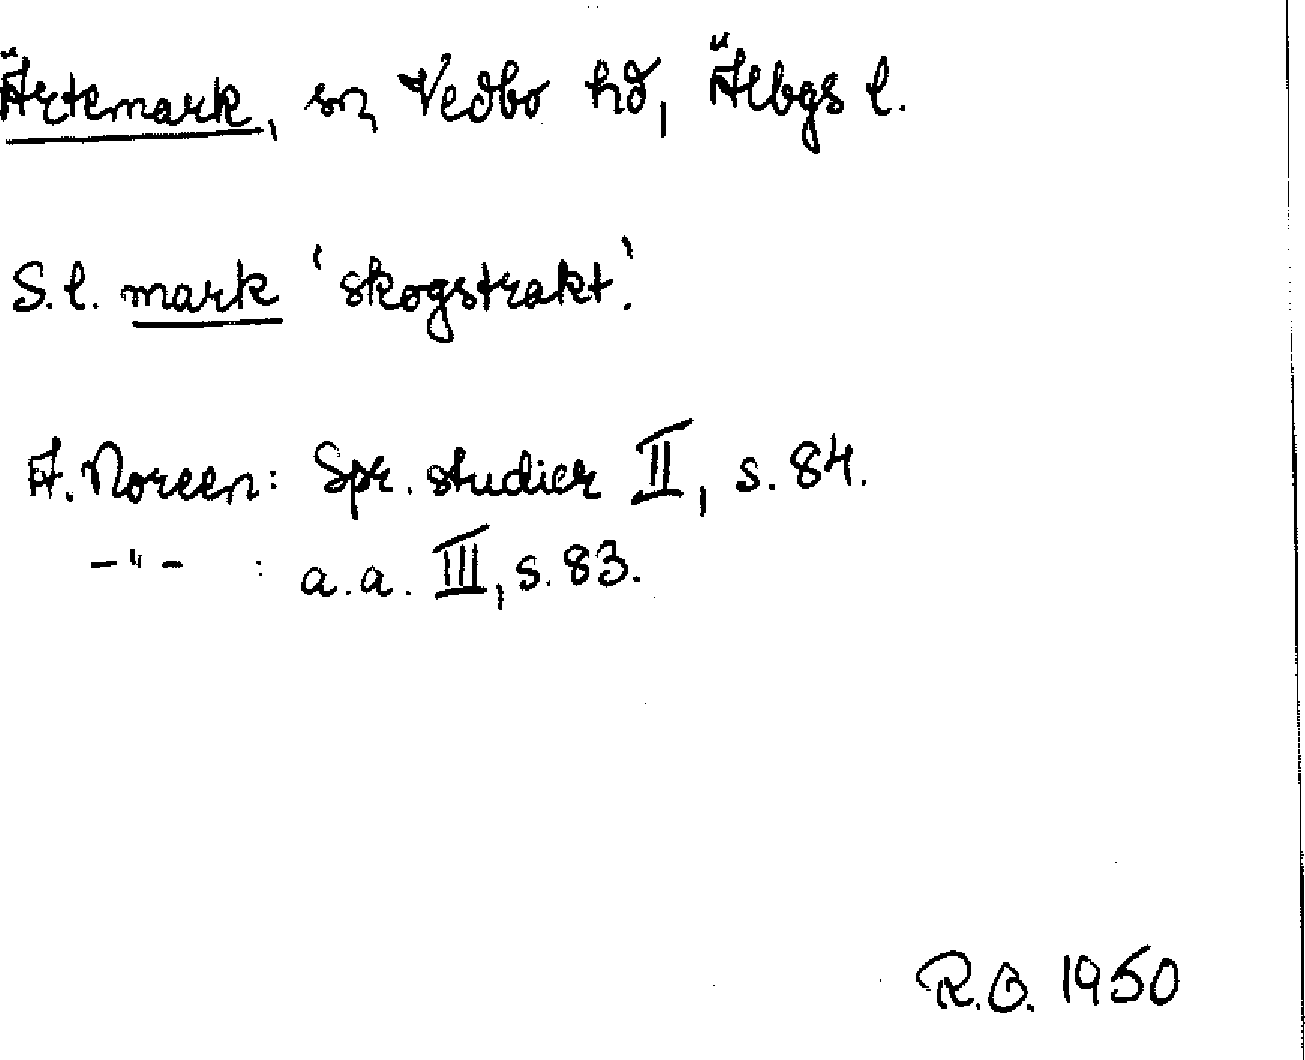 Ärtemark, sn Vedbo hd, Älbgs l.
S.l. mark 'skogstrakt'.
A. Noreen: Spr. studier II, s. 84.
–"– : a.a. III, s. 83.
R.O. 1950